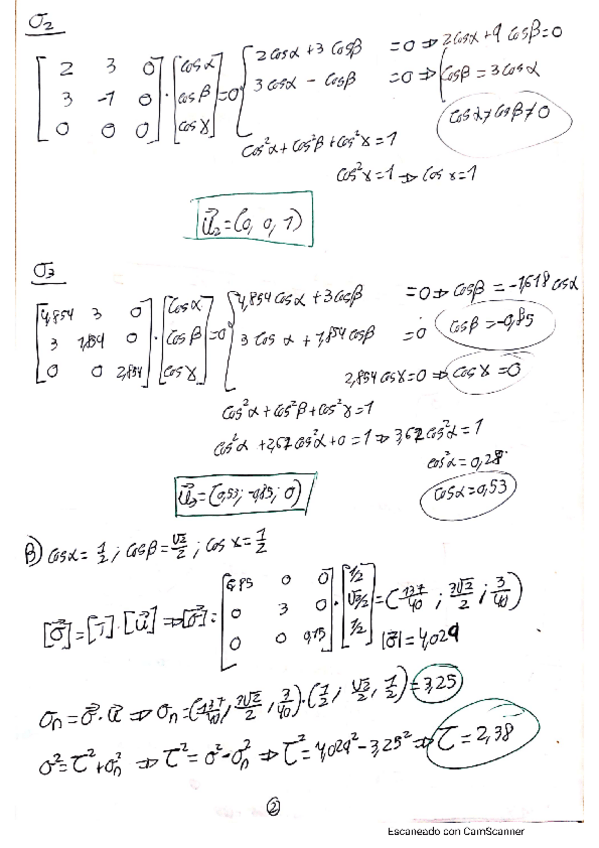 σ₂
[2 3 0; 3 -1 0; 0 0 0] · [cosα; cosβ; cosγ] = 0
2cosα + 3 cosβ = 0 ⇒ 2cosα + 9 cosβ = 0
3 cosα - cosβ = 0 ⇒ cosβ = 3cosα
cosα ≠ cosβ ≠ 0
cos²α + cos²β + cos²γ = 1
cos²γ = 1 ⇒ cosγ = 1
u⃗₂ = (0, 0, 1)
σ₃
[4,854 3 0; 3 1,854 0; 0 0 2,854] · [cosα; cosβ; cosγ] = 0
4,854 cosα + 3cosβ = 0 ⇒ cosβ = -1,618 cosα
3 cosα + 1,854 cosβ = 0 cosβ = -0,85
2,854 cosγ = 0 ⇒ cosγ = 0
cos²α + cos²β + cos²γ = 1
cos²α + 2,62 cos²α + 0 = 1 ⇒ 3,62 cos²α = 1
cos²α = 0,28
cosα = 0,53
u⃗₃ = (0,53; -0,85; 0)
B) cosα = 1/2; cosβ = √2/2; cosγ = 1/2
[σ⃗] = [T] · [u⃗] ⇒ [σ⃗] = [6,85 0 0; 0 3 0; 0 0 0,15] · [1/2; √2/2; 1/2] = (137/40; 3√2/2; 3/40)
|σ⃗| = 4,029
σn = σ⃗ · u⃗ ⇒ σn = (137/40; 3√2/2; 3/40) · (1/2; √2/2; 1/2) = 3,25
σ² = τ² + σn² ⇒ τ² = σ² - σn² ⇒ τ² = 4,029² - 3,25² ⇒ τ = 2,38
2
Escaneado con CamScanner